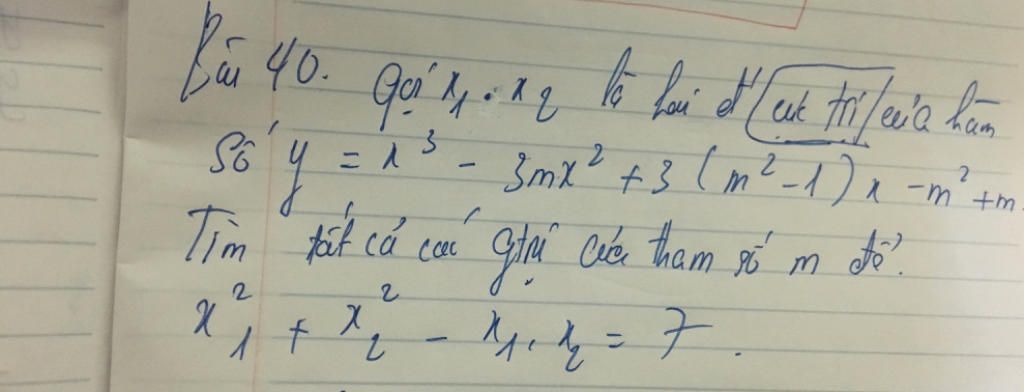 Bài 40. Gọi x₁ . x₂ là hai đ' cực trị của hàm
Số y = x³ - 3mx² + 3 (m² - 1) x - m² + m.
Tìm tất cả các gtrị của tham số m để.
x₁² + x₂² - x₁ . x₂ = 7.